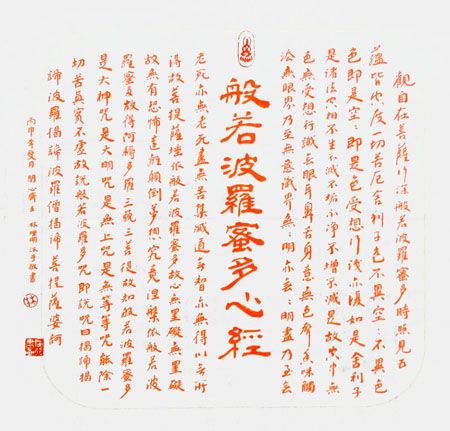 觀自在菩薩行深般若波羅蜜多時照見五
蘊皆空度一切苦厄舍利子色不異空空不異色
色即是空空即是色受想行識亦復如是舍利子
是諸法空相不生不滅不垢不淨不增不減是故空中無
色無受想行識無眼耳鼻舌身意無色聲香味觸
法無眼界乃至無意識界無無明亦無無明盡乃至無
般若波羅蜜多心經
老死亦無老死盡無苦集滅道無知亦無得以無所
得故菩提薩埵依般若波羅蜜多故心無罣礙無罣礙
故無有恐怖遠離顛倒夢想究竟涅槃依般若波
羅蜜多故得阿耨多羅三藐三菩提故知般若波羅蜜多
是大神咒是大明咒是無上咒是無等等咒能除一
切苦真實不虛故說般若波羅蜜多咒即說咒曰揭諦揭
諦波羅揭諦波羅僧揭諦菩提薩婆訶
丙申年夏月 心齋主 敬書